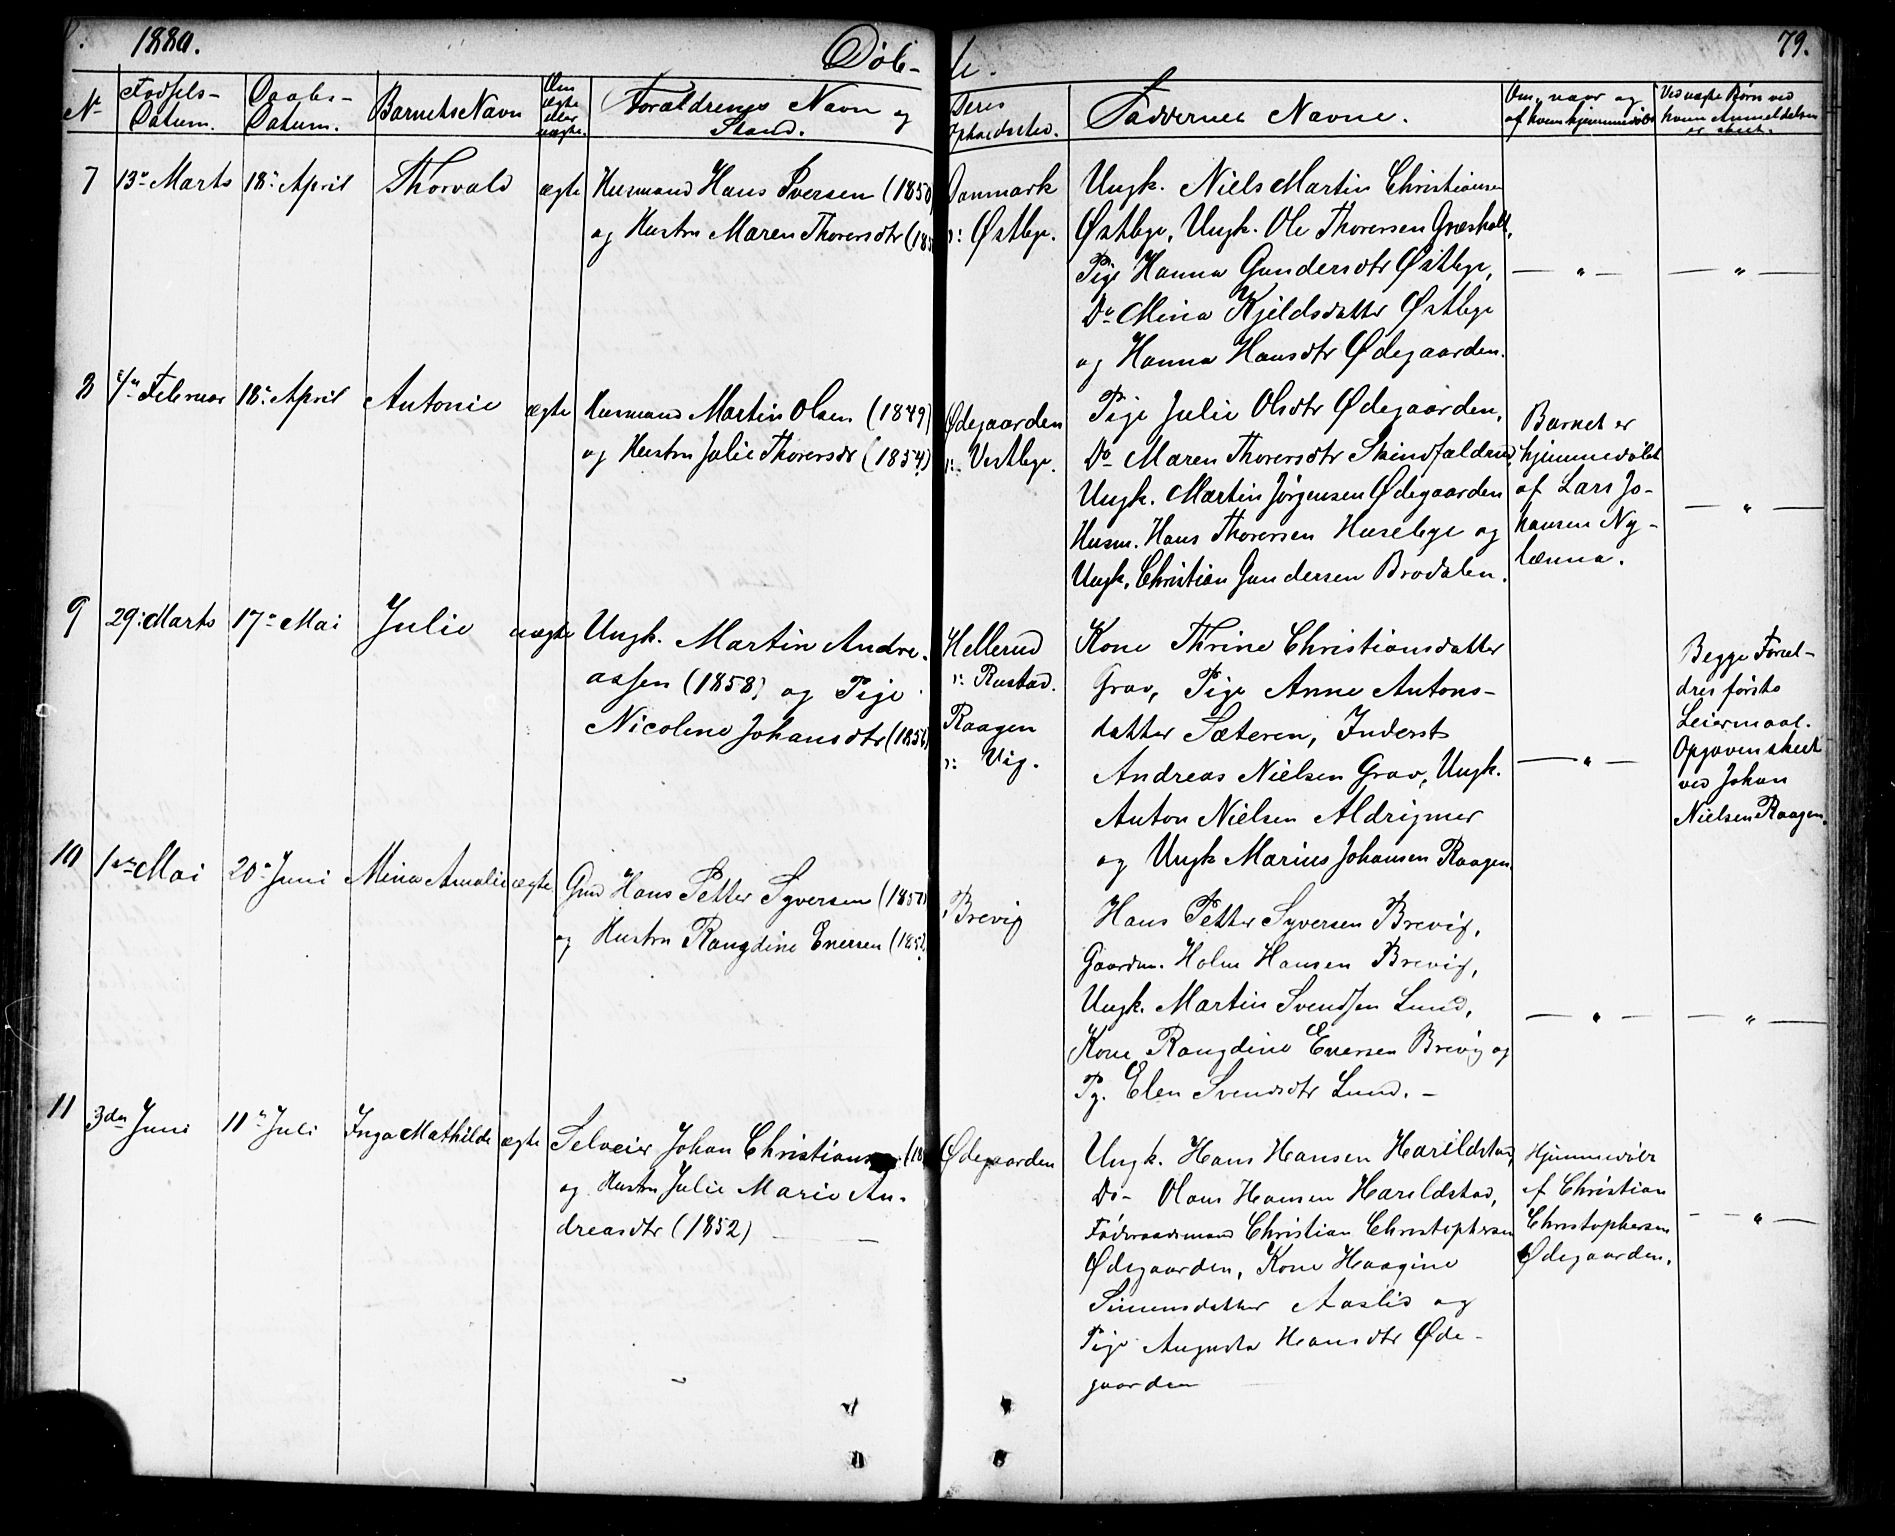 1880.
Døb-
te.
79.
No
Fødsels-
Datum.
Daabs-
Datum.
Barnets Navn
Om
ægte
eller
uægte.
Forældrenes Navn og
Stand.
Deres
Opholdssted.
Faddernes Navne.
Om, naar og
af hvem hjemmedøbt
Ved uægte Børn ved
hvem Anmeldelsen
er skeet.
7
13de Marts
18de April
Thorvald
ægte
Husmand Hans Iversen (1850)
og Hustru Maren Thorersdtr (18
Danmark
u: Østbye.
Ungk. Niels Martin Christiansen
Østbye, Ungk. Ole Thorersen Græsholt,
Pige Hanna Gundersdtr Østbye,
Do Mina Kjeldsdatter Østbye
og Hanna Hansdtr Ødegaarden.
— " —
— " —
8
4de Februar
18de April
Antonie
ægte
Husmand Martin Olsen (1849)
og Hustru Julie Thorersdr (1854)
Ødegaarden
u: Vestbye.
Pige Julie Olsdtr Ødegaarden,
Do Maren Thorersdtr Skindfaldrud,
Ungk. Martin Jørgensen Ødegaarden
Husm. Hans Thorersen Husebye og
Ungk. Christian Gundersen Brodalen.
Barnet er
hjemmedøbt
af Lars Jo-
hansen Ny-
lænna.
— " —
9
29de Marts
17de Mai
Julie
uægte
Ungk. Martin Andre-
assen (1858) og Pige
Nicoline Johansdtr (1856)
Hellerud
u: Rustad.
Raagen
u: Vig.
Kone Thrine Christiansdatter
Grav, Pige Anne Antons-
datter Sæteren, Inderst
Andreas Nielsen Grav, Ungk.
Anton Nielsen Aldrigmer
og Ungk Marius Johansen Raagen.
— " —
Begge Foræl-
dres første
Leiermaal.
Opgaven skeet
ved Johan
Nielsen Raagen.
10
1ste Mai
20de Juni
Mina Amalie
ægte
Gmd Hans Petter Syversen (1857)
og Hustru Rangdine Enersen (185
Brevig
Hans Petter Syversen Brevig,
Gaardm. Holm Hansen Brevig,
Ungk. Martin Svendsen Lund,
Kone Rangdine Enersen Brevig og
Pg. Elen Svendsdtr Lund. —
— " —
— " —
11
3die Juni
11de Juli
Inga Mathilde
ægte
Selveier Johan Christiansen (18
og Hustru Julie Marie An-
dreasdtr (1852) — —
Ødegaarden
Ungk. Hans Hansen Harildstad,
Do- Olaus Hansen Harildstad,
Føderaadsmand Christian Christophersen
Ødegaarden, Kone Haagine
Simensdatter Aaslid og
Pige Augusta Hansdtr Øde-
gaarden
Hjemmedøbt
af Christian
Christophersen
Ødegaarden.
— " —